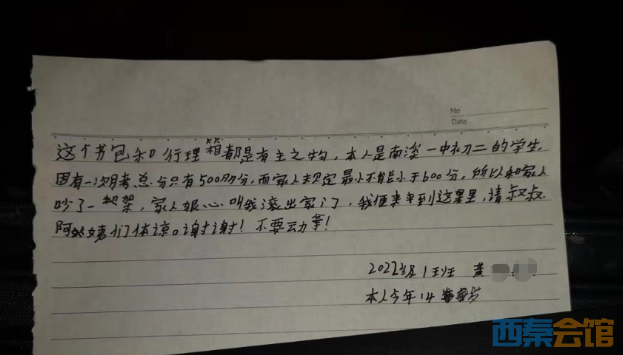 No
Date
这个书包和行理箱都是有主之物，本人是南溪一中初二的学生
因有一次月考总分只有500多分，而家人规定最少不能小于600分，所以和家人
吵了一架，家人狠心叫我滚出家门，我便来到这里，请叔叔
阿姨们体谅。谢谢！不要动等！
2022级1班 黄
本人今年14岁
西秦会馆